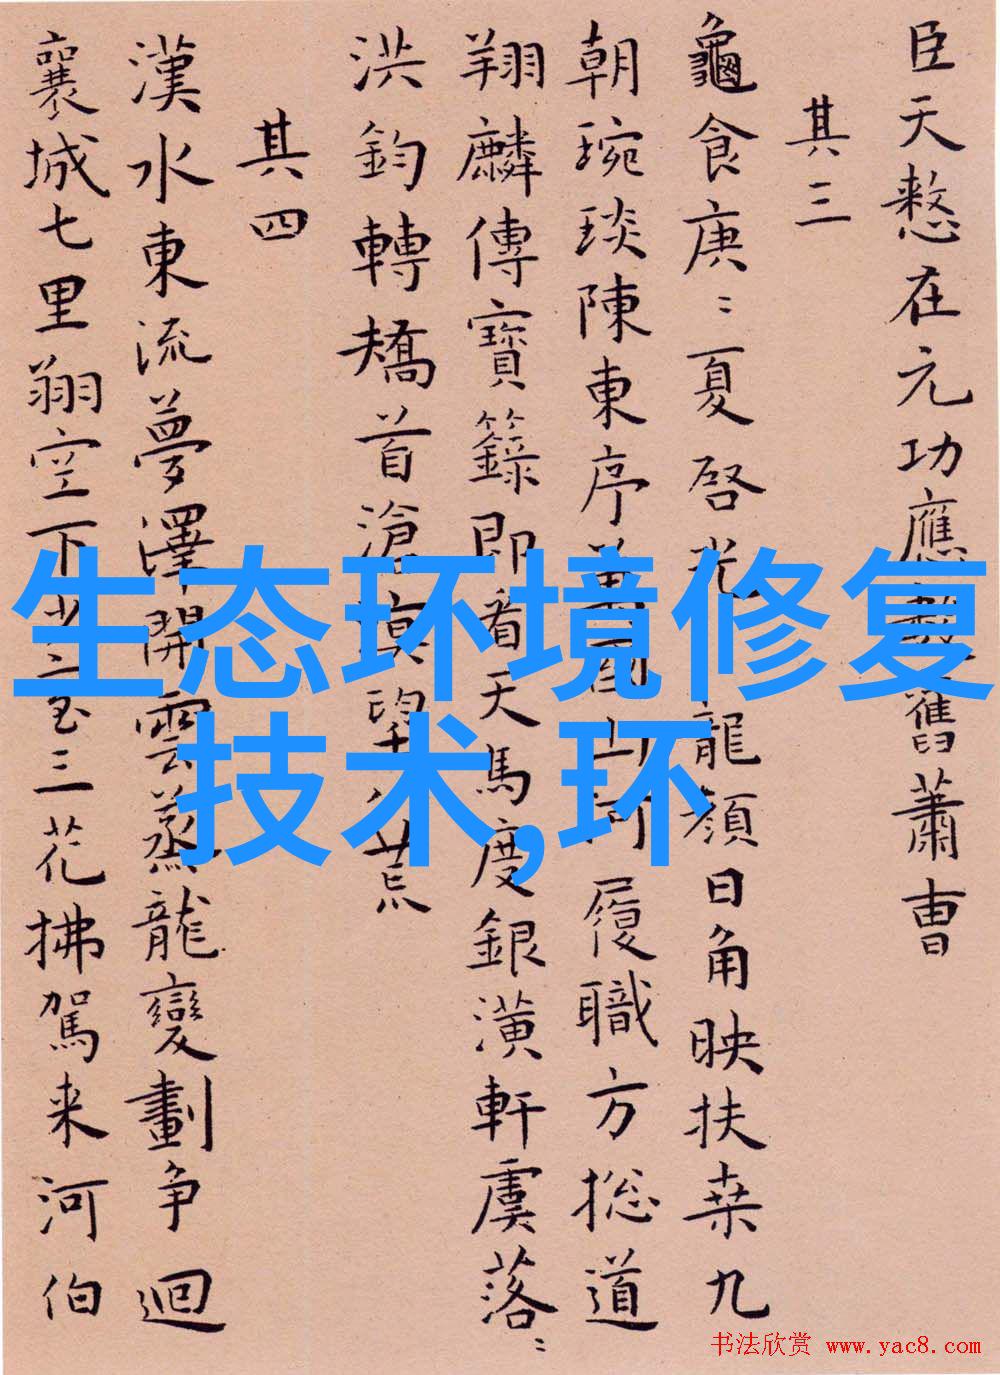 臣天憗在元功應數舊蕭曹
其三
龜食庚〻夏啓光龍顏日角映扶桒九
朝琬琰陳東序萬國山河履職方揔道
翔麟傳寳籙即看天馬度銀潢軒虞落〻
洪鈞轉矯首滄溟望八荒
其四
漢水東流夢澤開雲蒸龍變劃争迴
襄城七里翔空下
三花拂駕来河伯
生态环境修复
技术,环
书法欣赏 www.yac8.com